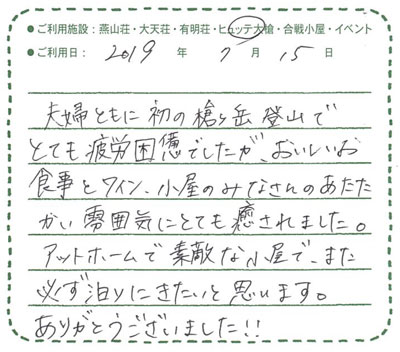 ●ご利用施設：燕山荘・大天荘・有明荘・ヒュッテ大槍・合戦小屋・イベント
●ご利用日： 2019 年 7 月 15 日
夫婦ともに初の槍ヶ岳登山で
とても疲労困憊でしたが、おいしいお
食事とワイン、小屋のみなさんのあたた
かい雰囲気にとても癒されました。
アットホームで素敵な小屋で、また
必ず泊りにきたいと思います。
ありがとうございました!!